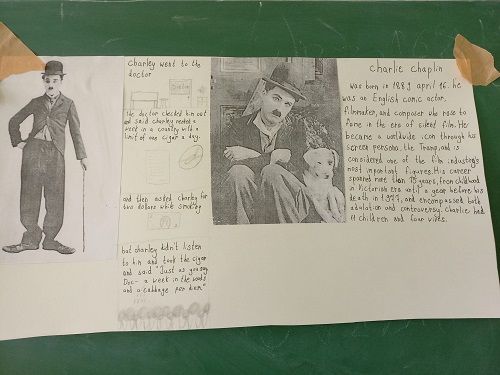 Charley went to the
doctor
the doctor checked him out
and said charley needed a
week in a country with a
limit of one cigar a day.
and then asked charley for
two dollars while smoking
but charley didn't listen
to him and took the cigar
and said "Just as you say
Doc - a week in the woods
and a cabbage per diem"
Charlie Chaplin
was born in 1889 april 16. He
was an English comic actor,
filmmaker, and composer who rose to
fame in the era of silent film. Her
became a worldwide icon through his
screen persona, the Tramp, and is
considered one of the film industry's
most important figures. His career
spanned more than 75 years, from childhood
in Victorian era until a year before his
death in 1977, and encompassed both
adulation and controversy. Charlie had
11 children and four wives.